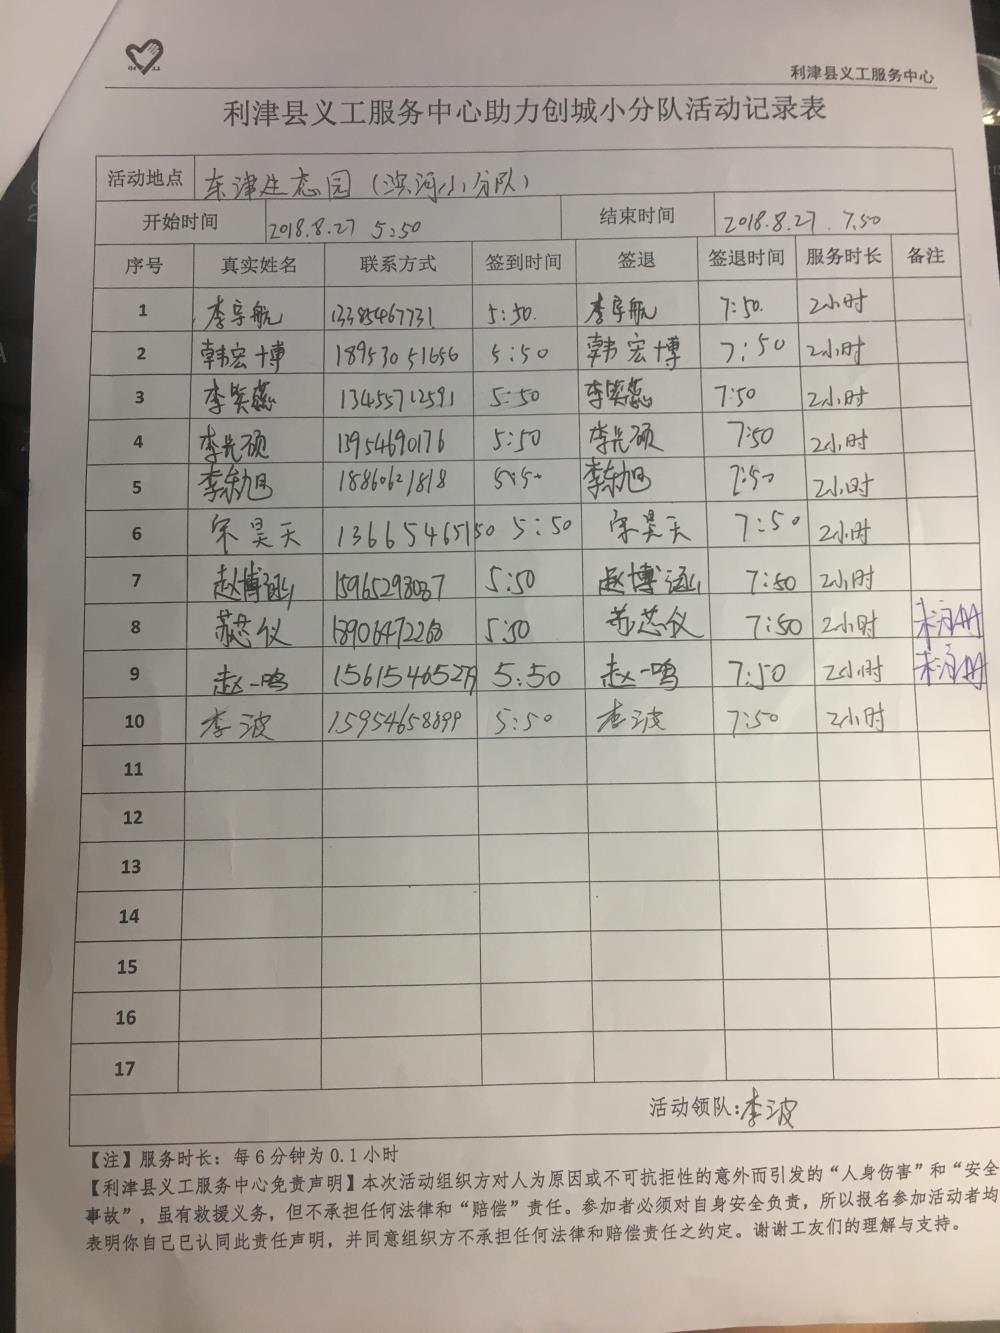 利津县义工服务中心
利津县义工服务中心助力创城小分队活动记录表
活动地点 东津生态园（滨河小分队）
开始时间 2018.8.27 5:50 结束时间 2018.8.27. 7.50
序号 真实姓名 联系方式 签到时间 签退 签退时间 服务时长 备注
1 李宇航 13385467731 5:50. 李宇航 7:50. 2小时
2 韩宏博 18953051656 5:50 韩宏博 7:50 2小时
3 李笑蕊 13455712591 5:50 李笑蕊 7:50 2小时
4 李光硕 13954690176 5:50 李光硕 7:50 2小时
5 李东旭 18860621818 5:50 李东旭 7:50 2小时
6 宋昊天 13665465150 5:50 宋昊天 7:50 2小时
7 赵博涵 15965298087 5:50 赵博涵 7:50 2小时
8 苏芯仪 18906472268 5:50 苏芯仪 7:50 2小时 未注册
9 赵一鸣 15615465279 5:50 赵一鸣 7:50 2小时 未注册
10 李波 15954658899 5:50 李波 7:50 2小时
11
12
13
14
15
16
17
活动领队:李波
【注】服务时长：每6分钟为0.1小时
【利津县义工服务中心免责声明】本次活动组织方对人为原因或不可抗拒性的意外而引发的“人身伤害”和“安全
事故”，虽有救援义务，但不承担任何法律和“赔偿”责任。参加者必须对自身安全负责，所以报名参加活动者均
表明你自己已认同此责任声明，并同意组织方不承担任何法律和赔偿责任之约定。谢谢工友们的理解与支持。